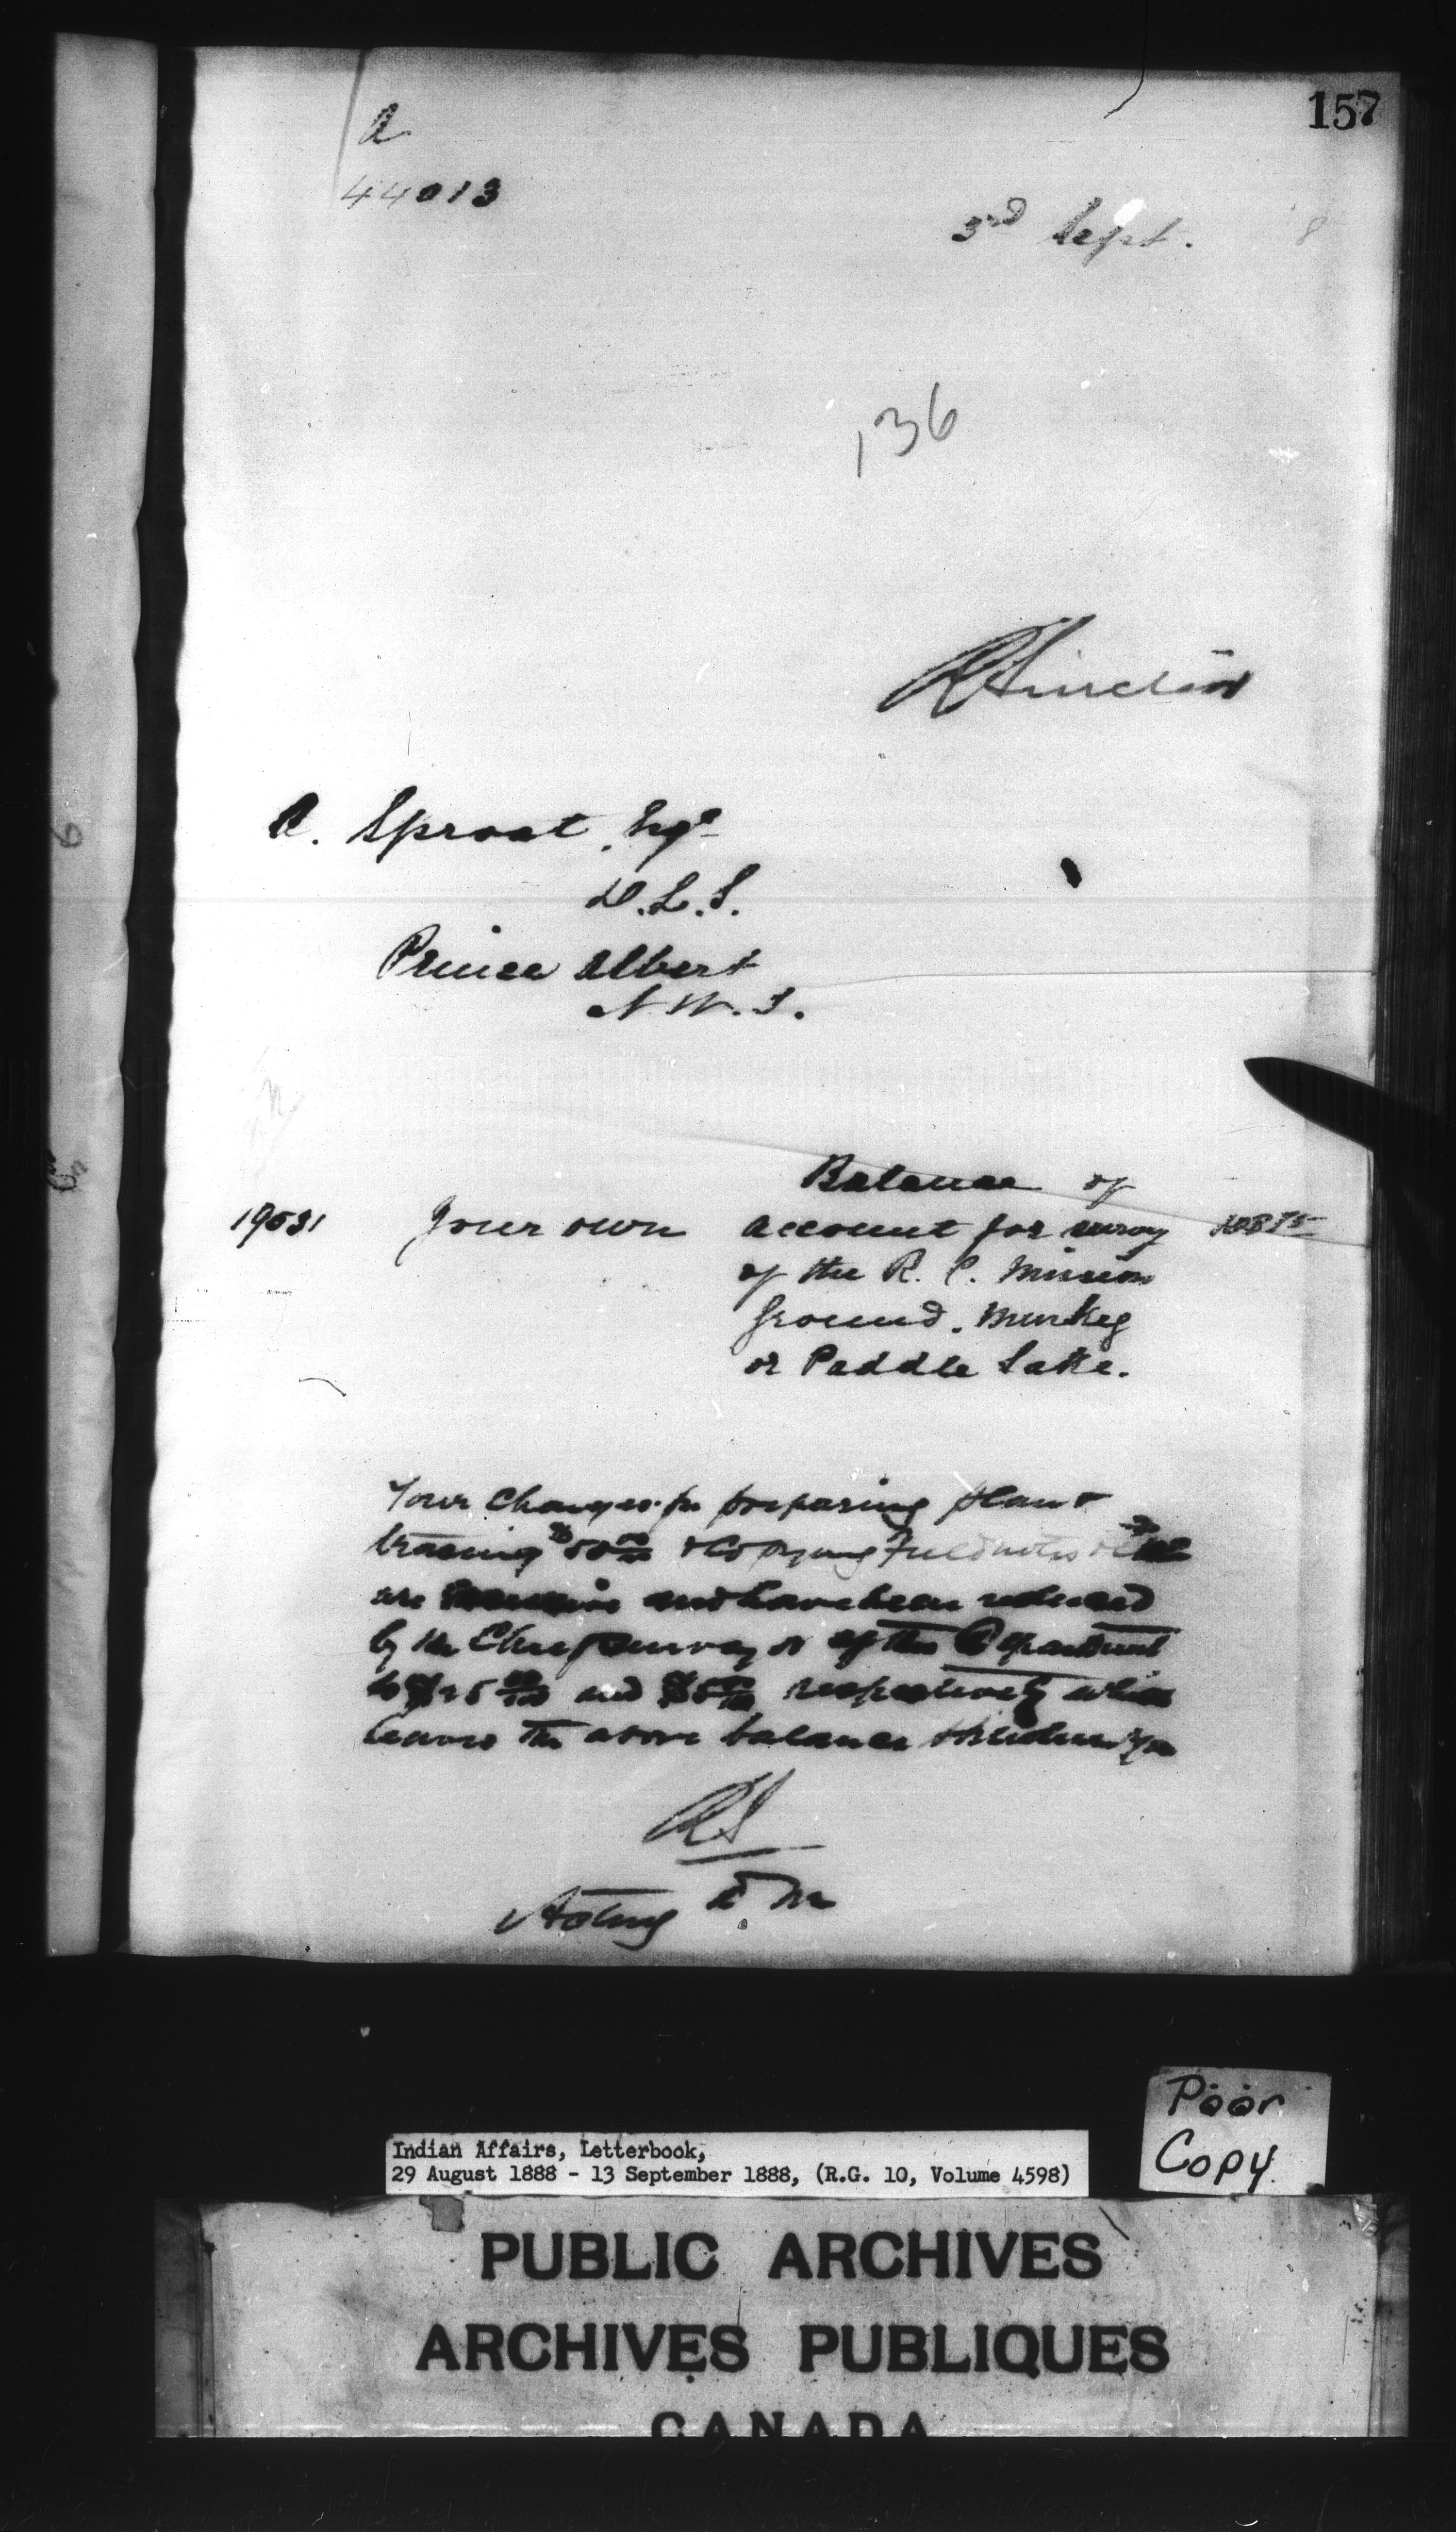 157
A
44013
3rd Sept. 8
136
R Sinclair
A. Sproat, Esqr
D.L.S.
Prince Albert
N.W.T.
Balance of
19531 Your own account for survey
of the R. C. Mission
ground, Muskeg
or Paddle Lake.
Your charges for preparing plan &
tracing $50 00/100 & copying Field notes
are and have been reduced
by the Chief Surveyor of the Department
to $25 00/100 and respectively which
leaves the above balance
RS
Acting
Poor
Copy
Indian Affairs, Letterbook,
29 August 1888 - 13 September 1888, (R.G. 10, Volume 4598)
PUBLIC ARCHIVES
ARCHIVES PUBLIQUES
CANADA